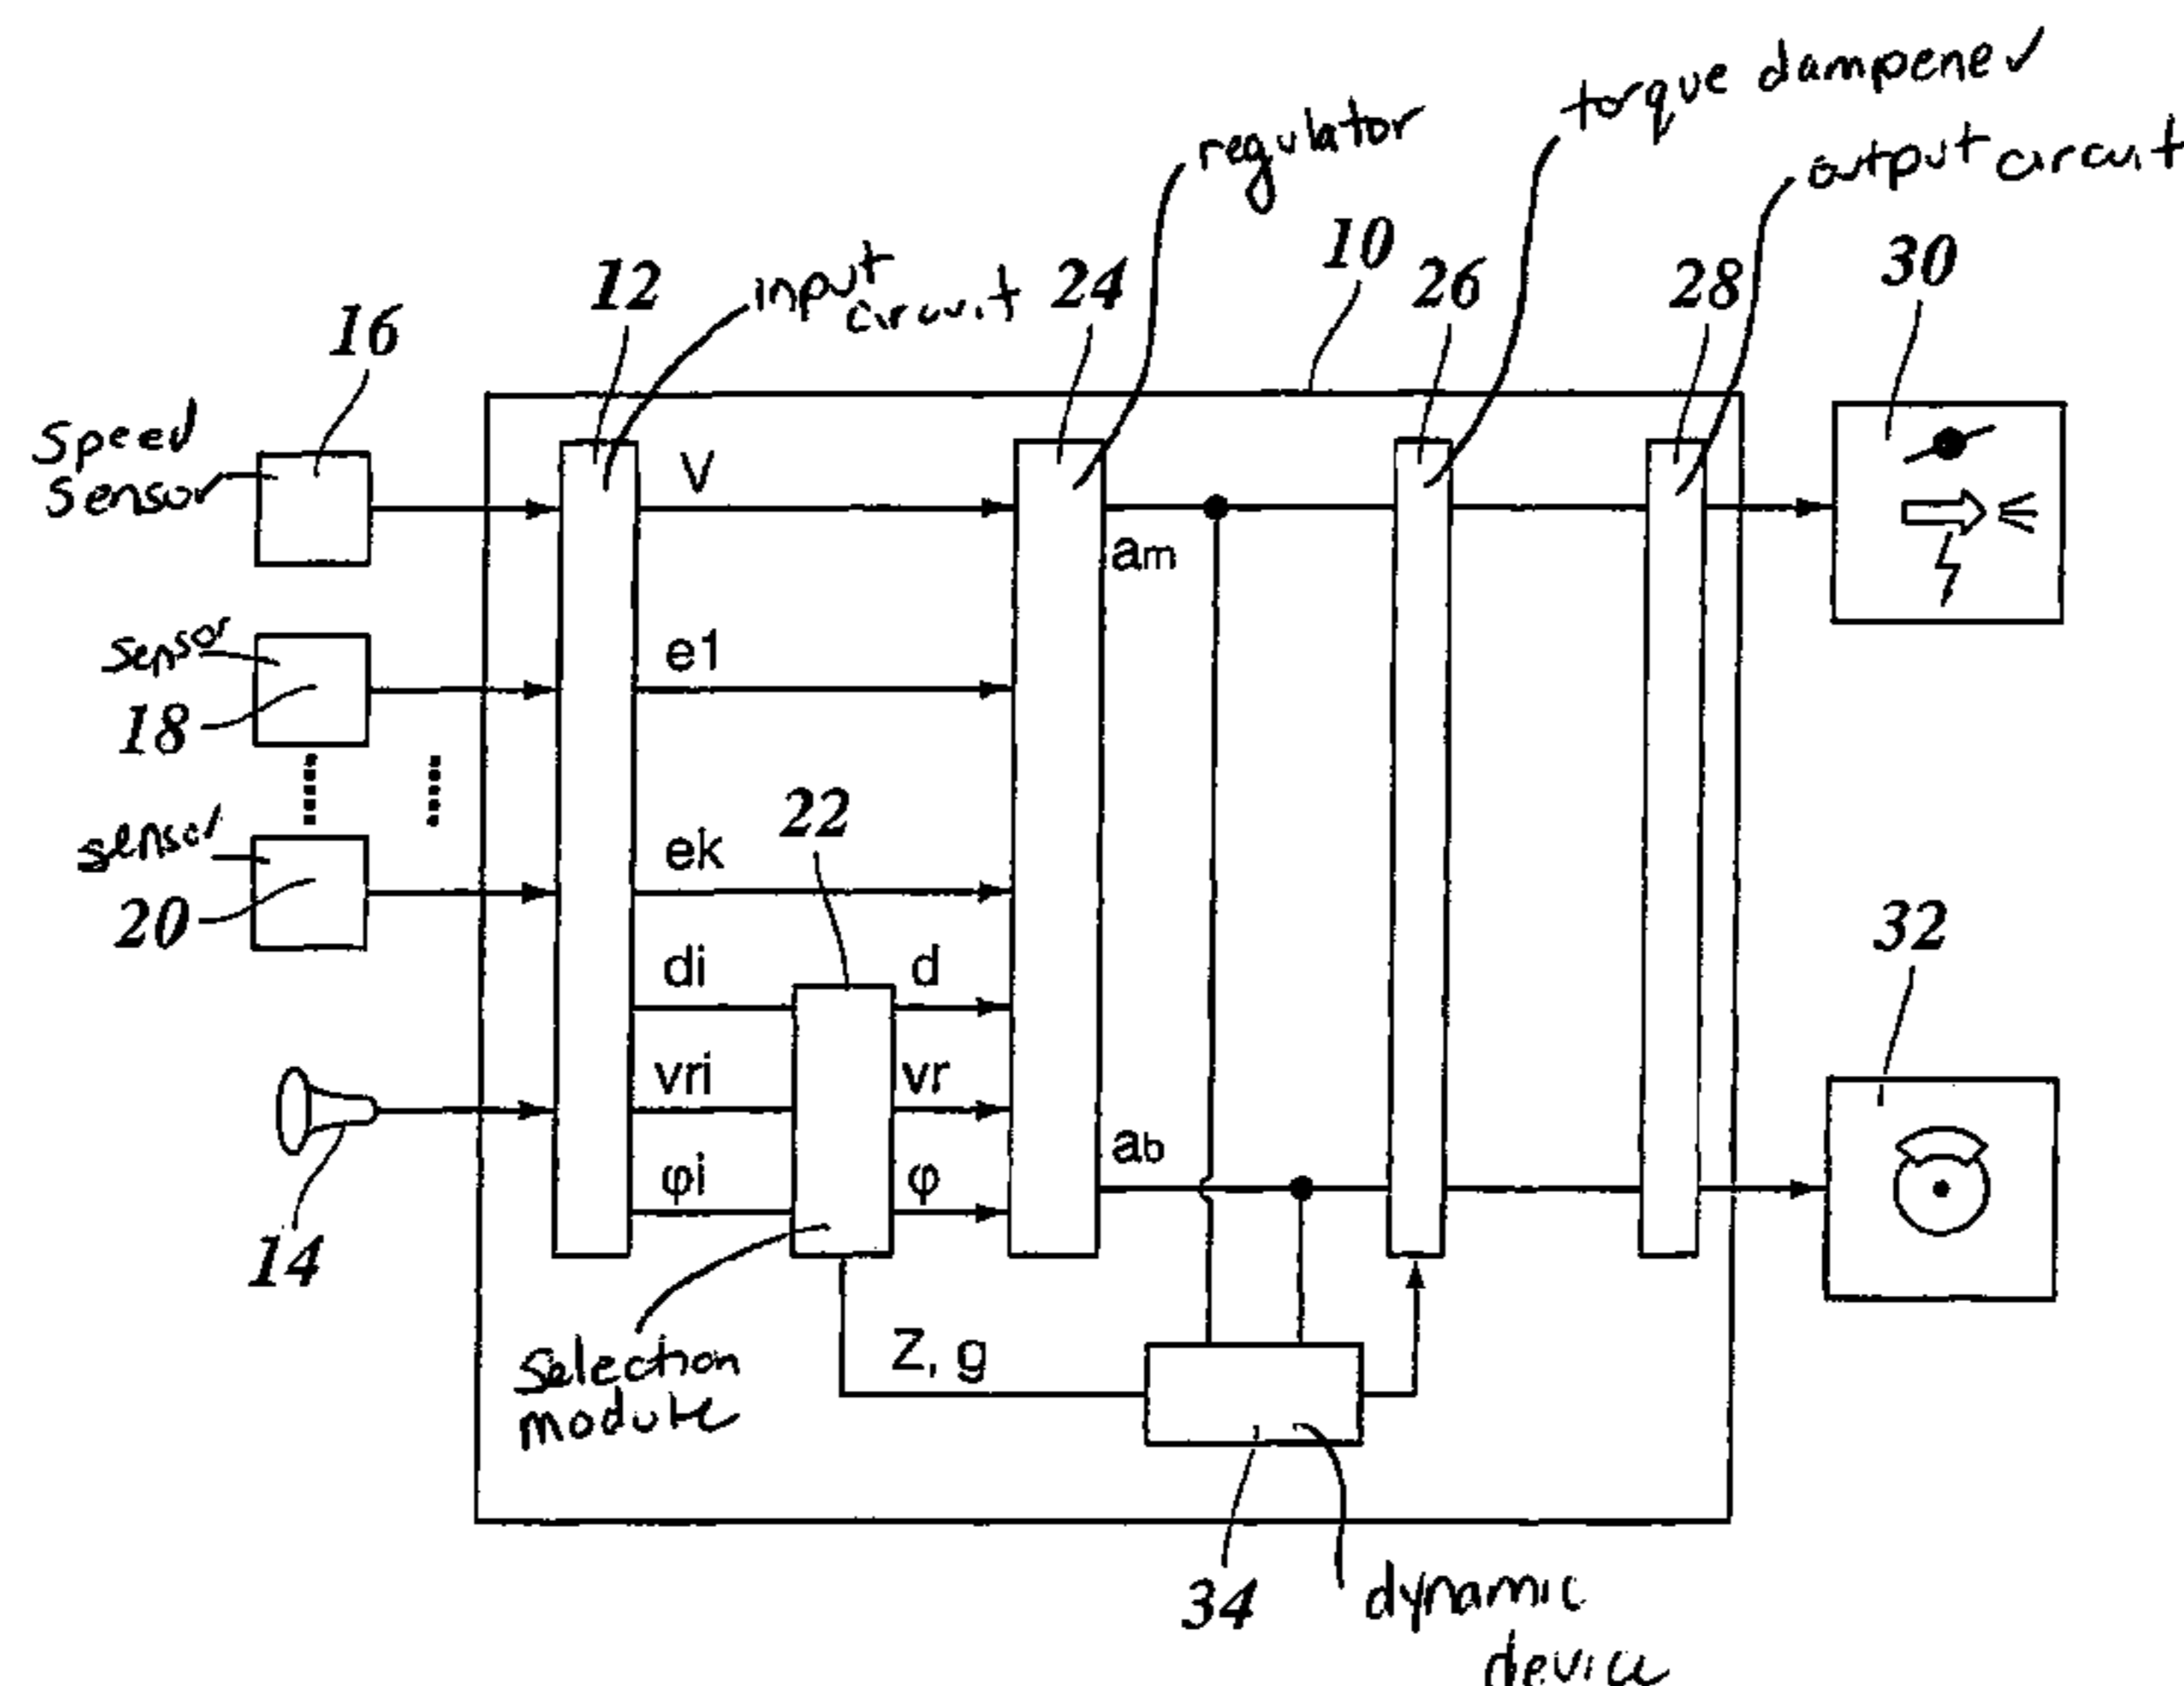 torque dampener
regulator
output circuit
10
30
12
input
circuit
24
26
28
16
Speed
Sensor
V
am
sensor
e1
18
22
sensor
ek
20
32
di
d
vri
vr
ab
φi
φ
14
Selection
module
Z, g
34
dynamic
device